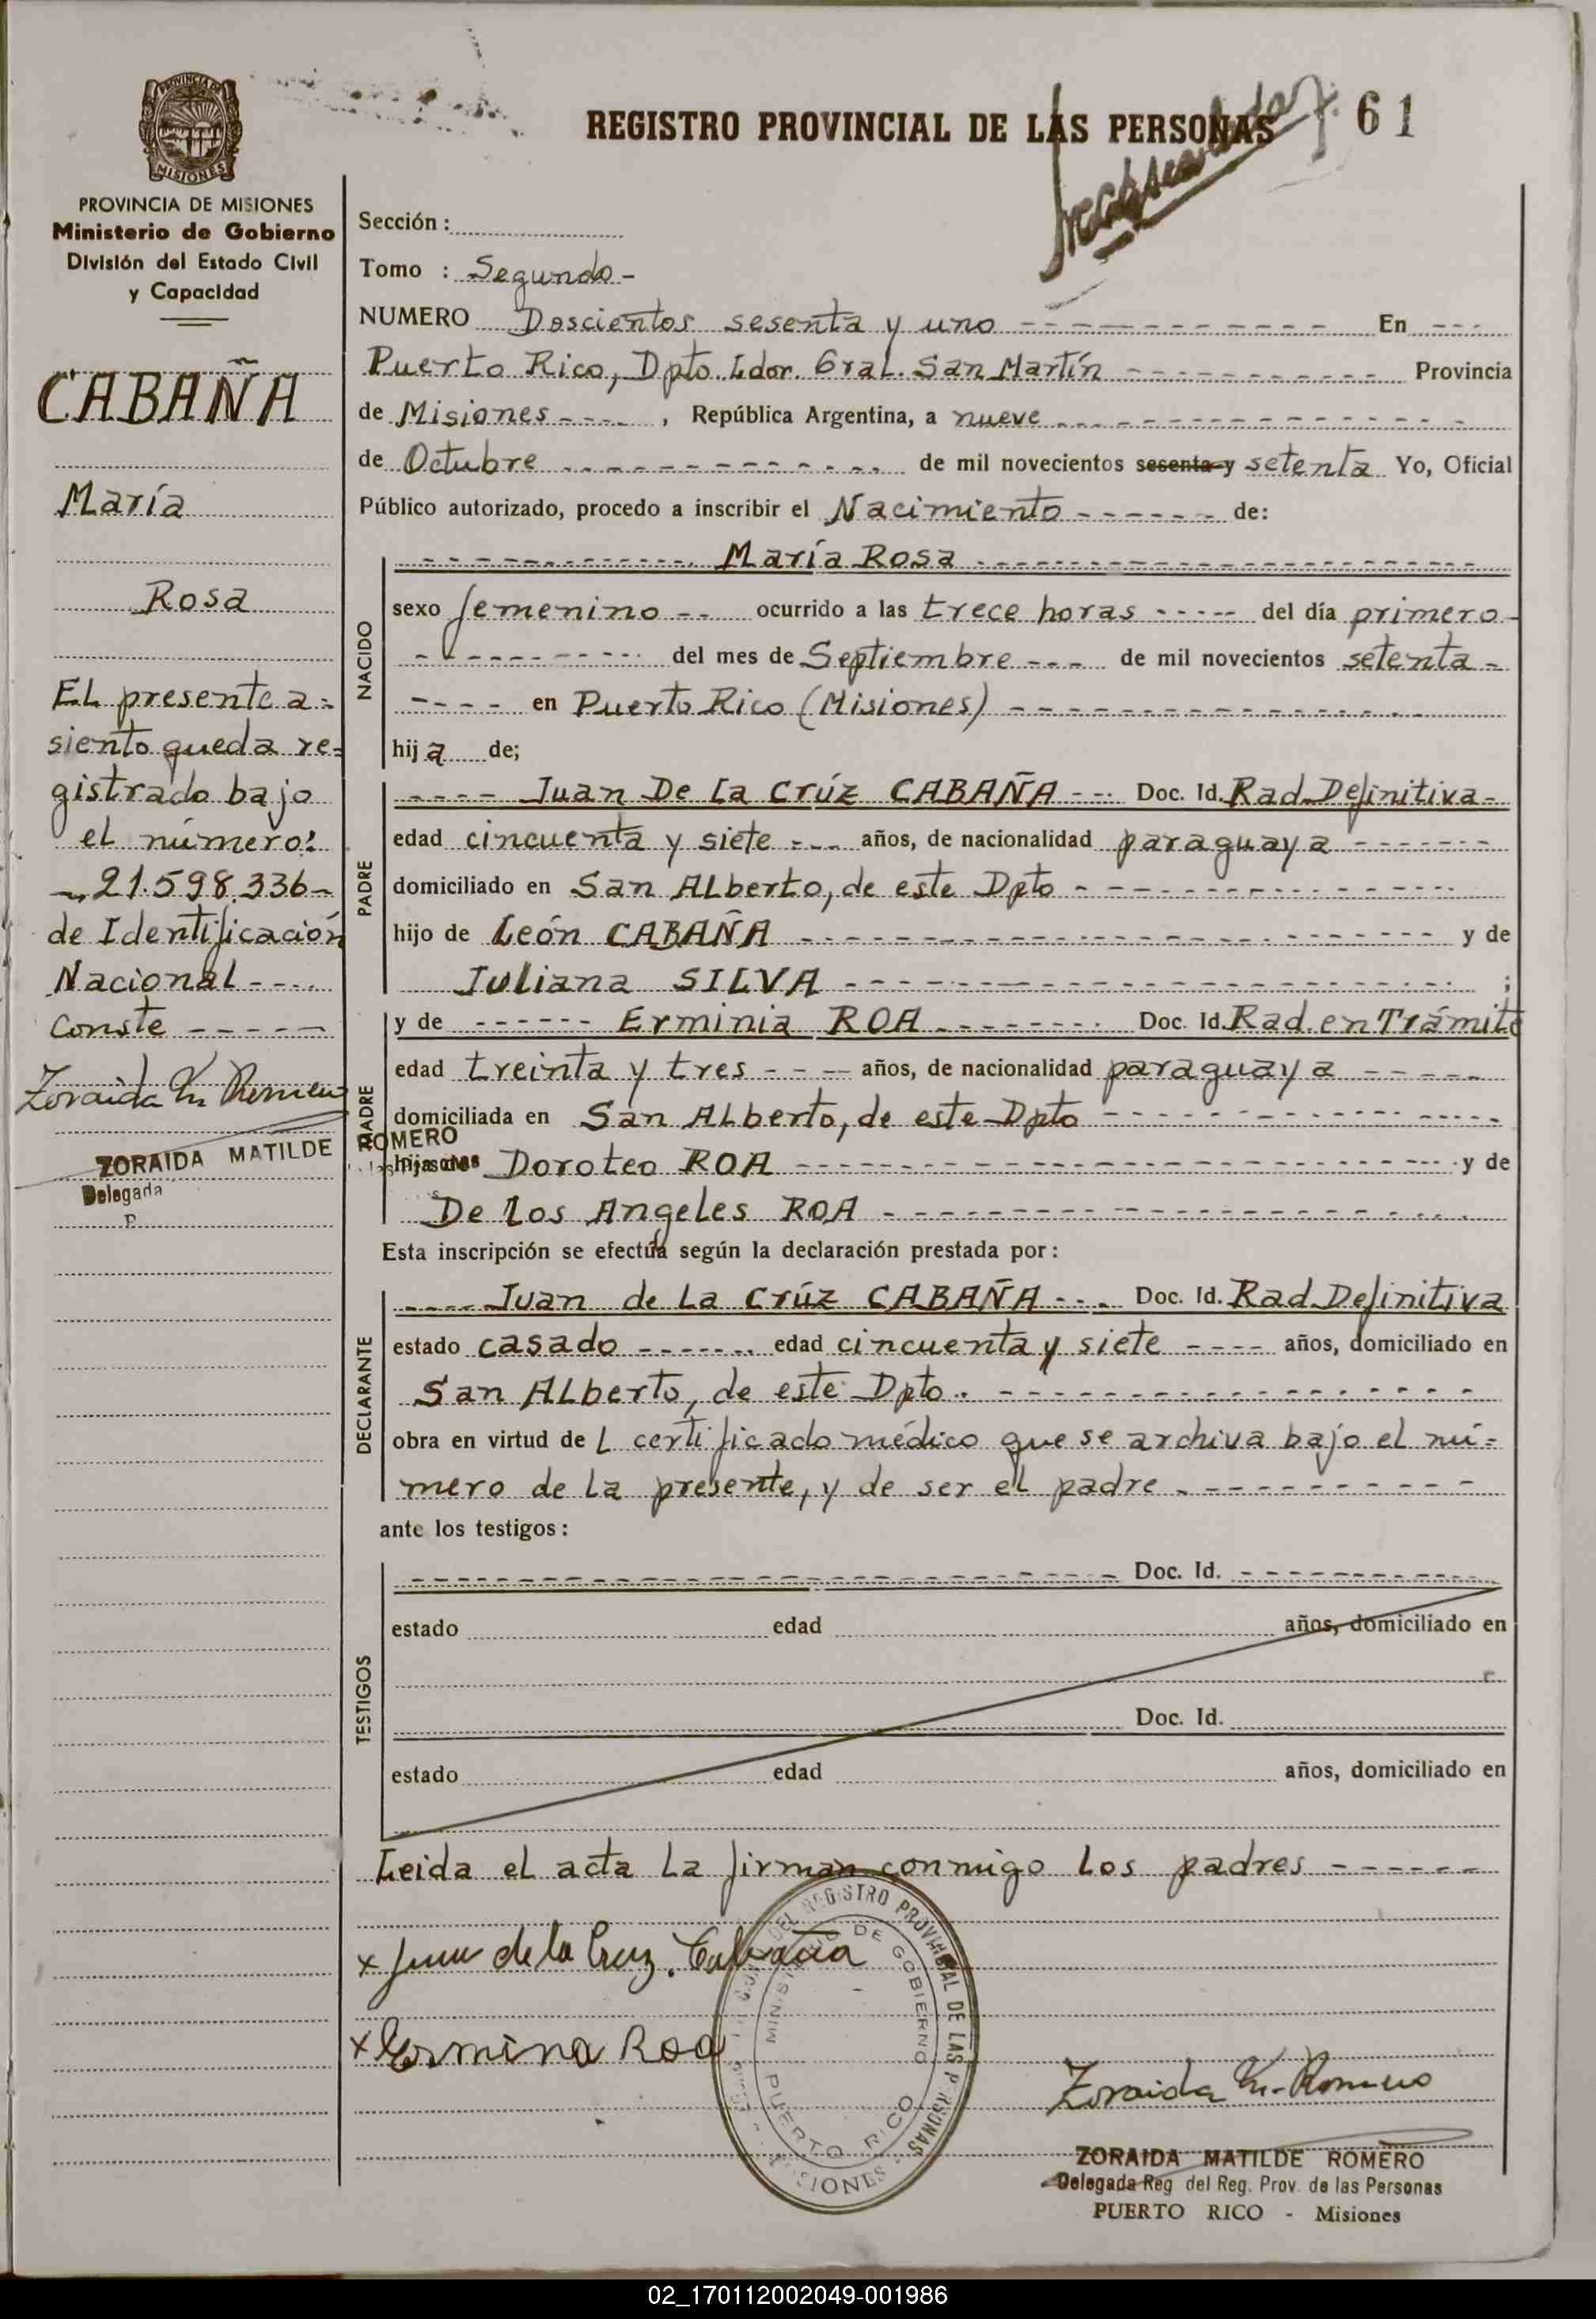 REGISTRO PROVINCIAL DE LAS PERSONAS
61
PROVINCIA DE MISIONES
PROVINCIA DE MISIONES
Ministerio de Gobierno
División del Estado Civil
y Capacidad
CABAÑA
María
Rosa
EL presente a-
siento queda re-
gistrado bajo
el número:
- 21.598.336 -
de Identificación
Nacional ----
Conste -----
Zoraida M. Romero
ZORAIDA MATILDE ROMERO
Delegada
Sección :
Tomo : Segundo -
NUMERO Doscientos sesenta y uno --- En ---
Puerto Rico, Dpto. Ldor. Gral. San Martín --- Provincia
de Misiones ---- , República Argentina, a nueve ---
de Octubre --- de mil novecientos sesenta y setenta Yo, Oficial
Público autorizado, procedo a inscribir el Nacimiento ------ de:
NACIDO
--- María Rosa ---
sexo femenino -- ocurrido a las trece horas ----- del día primero -
--- del mes de Septiembre --- de mil novecientos setenta -
---- en Puerto Rico (Misiones) ---
hija de;
PADRE
---- Juan De La Crúz CABAÑA --- Doc. Id. Rad. Definitiva -
edad cincuenta y siete --- años, de nacionalidad paraguaya ---
domiciliado en San ALberto, de este Dpto - ---
hijo de León CABAÑA --- y de
Juliana SILVA --- ;
MADRE
y de ------ Erminia ROA --- Doc. Id. Rad. en Trámite
edad treinta y tres ---- años, de nacionalidad paraguaya -----
domiciliada en San ALberto, de este Dpto ---
hija de Doroteo ROA --- y de
De Los Angeles ROA ---
Esta inscripción se efectúa según la declaración prestada por :
DECLARANTE
---- Juan de La Crúz CABAÑA --- Doc. Id. Rad. Definitiva
estado casado ------- edad cincuenta y siete ---- años, domiciliado en
San ALberto, de este Dpto. ---
obra en virtud de L certificado médico que se archiva bajo el nú-
mero de La presente, y de ser el padre - ---
ante los testigos :
TESTIGOS
--- Doc. Id. ---
estado edad años, domiciliado en
Doc. Id.
estado edad años, domiciliado en
Leida el acta La firman conmigo Los padres ------
x Juan de la Cruz. Cabaña
x Ermina Roa
DEL REGISTRO PROVINCIAL DE LAS PERSONAS
MINISTERIO DE GOBIERNO
PUERTO RICO
MISIONES
Zoraida M. Romero
ZORAIDA MATILDE ROMERO
Delegada Reg del Reg. Prov. de las Personas
PUERTO RICO - Misiones
02_170112002049-001986